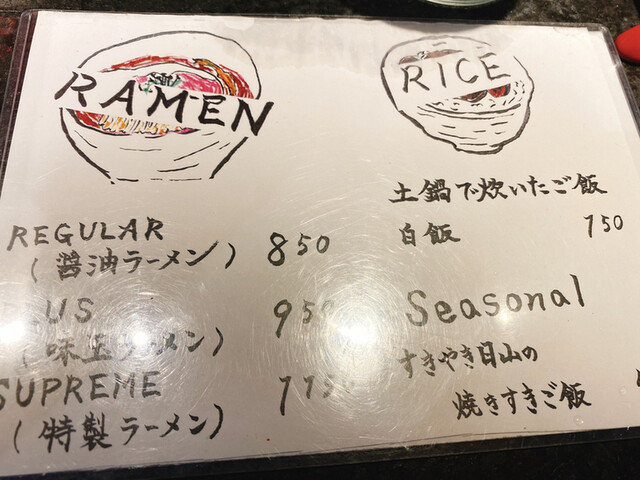 RAMEN
REGULAR 850
(醤油ラーメン)
950
(味玉ラーメン)
SUPREME
(特製ラーメン)
RICE
土鍋で炊いたご飯
白飯 150
Seasonal
すきやき日山の
焼きすきご飯